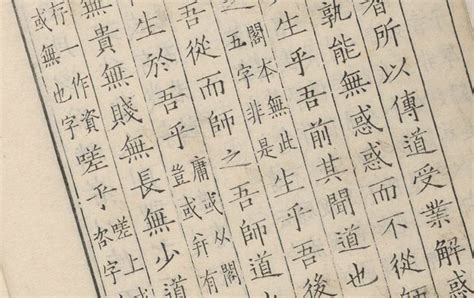 者所以傳道受業解
孰能無惑惑而不從師
生乎吾前其聞道也
閣本無此
五字非是
生乎吾後
吾從而師之吾師道
生於吾乎
庸或从閣
豈或并有
無貴無賤無長無少道
存一作資
或無也字
嗟乎
嗟上
咨字